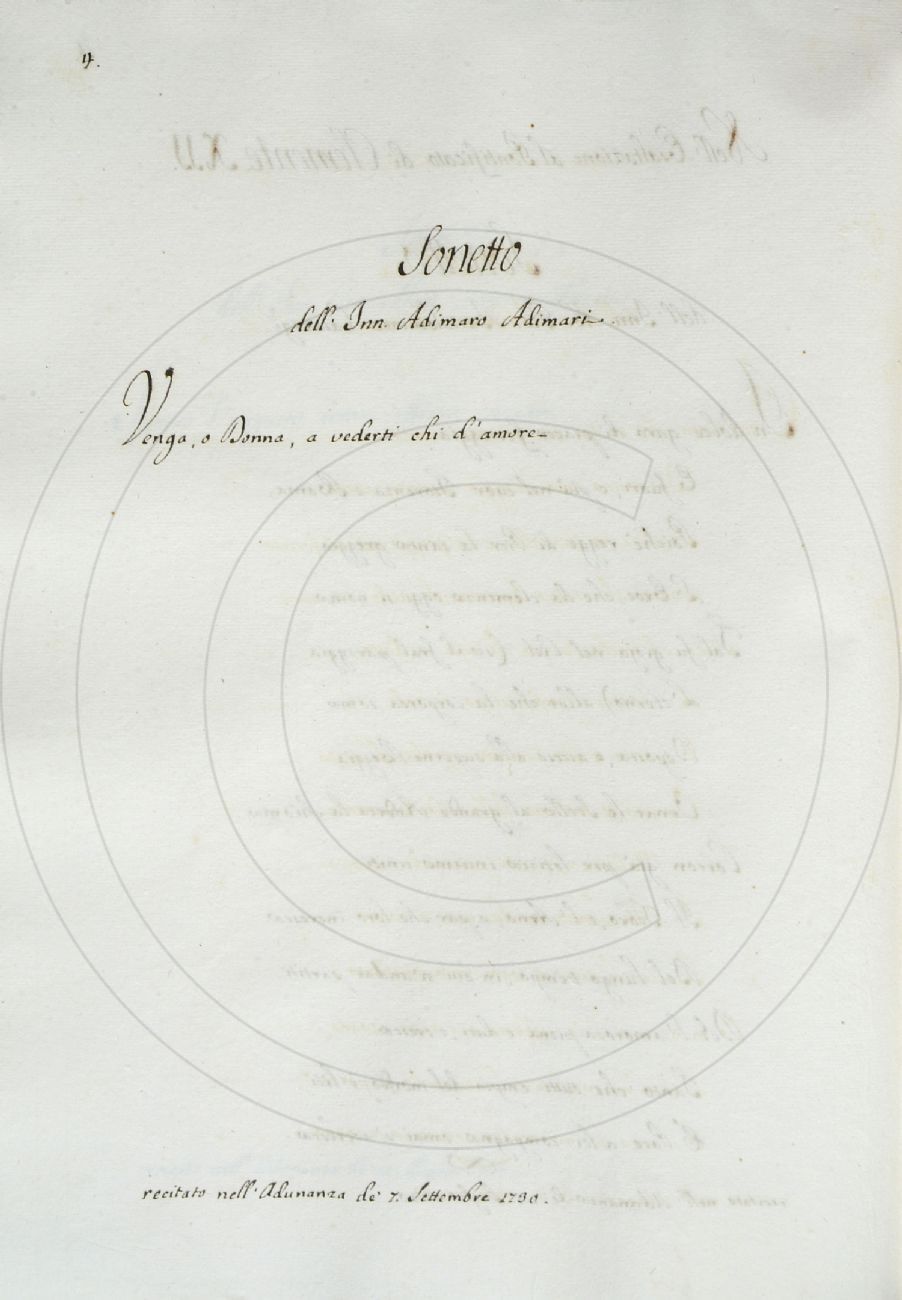 4.
Sonetto.
dell'Inn. Adimaro Adimari.
Venga, o Donna, a vederti chi d'amore
recitato nell'Adunanza de' 7. Settembre 1730.